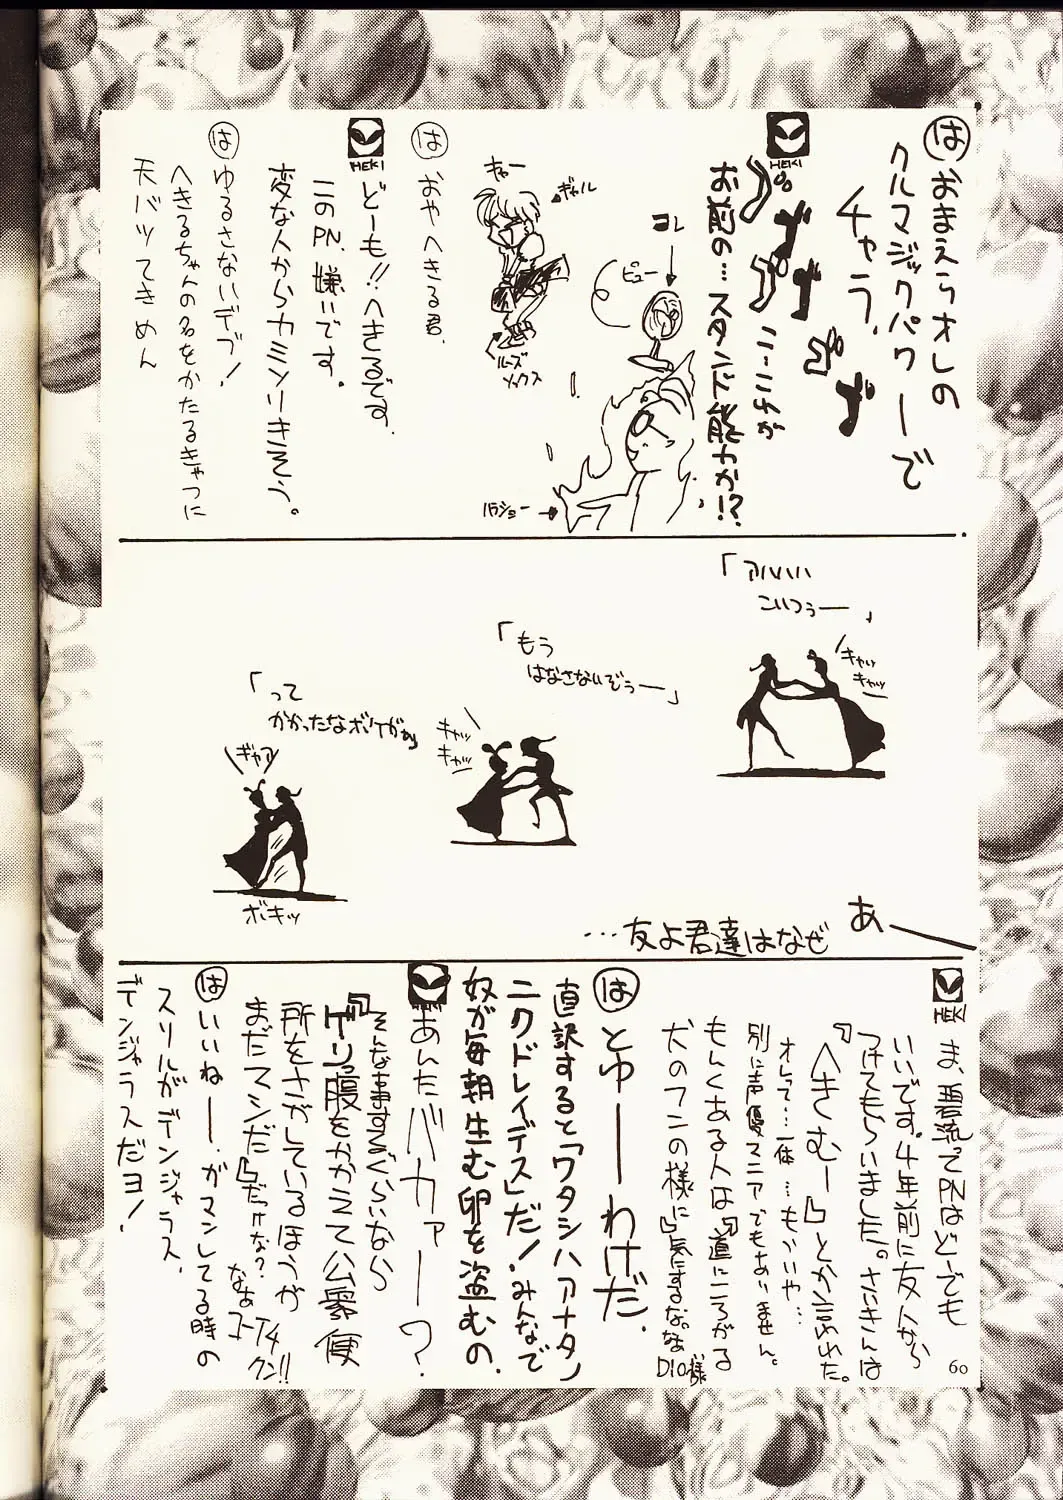 は おまえらオレの
クルマジックパワーで
チャラ、
HEKI
ブ゛ザザザザ
こーこれが
お前の…スタンド能力か!?
コレ
ビュー
ハラショー
キャー
ギャル
ルーズ
ソックス
は おやへきる君、
HEKI
どーも!!へきるです。
このPN、嫌いです。
変な人からカミソリきそう。
は ゆるさないデブ!
へきるちゃんの名をかたるきゃつに
天バツてきめん
「アハハハ
こいつぅー」
キャッ
キャッ
「もう
はなさないぞぅー」
キャッ
キャッ
「って
かかったなボケがぁ」
ギャア
ボキッ
あー
…友よ君達はなぜ
HEKI
ま、碧流ってPNはどーでも
いいです。4年前に友人から
つけてもらいました。さいきんは
『へきむー』とか言われた。
オレって…一体…もういや…
別に声優マニアでもありません。
もんくある人は『道にころがる
犬のフンの様に』気にするな。なぁ
DIO様
は とゆーーわけだ、
直訳すると「ワタシハアナタノ
ニクドレイデス」だ!みんなで
奴が毎朝生む卵を盗むの。
HEKI
あんたバカァー?
『そんな事するぐらいなら
ゲリ腹をかかえて公衆便
所をさがしているほうが
まだマシだ』だっけな?
なぁ
コーイチ
クン!!
は いいねー、ガマンしてる時の
スリルがデンジャラス、
デンジャラスだヨ!
60